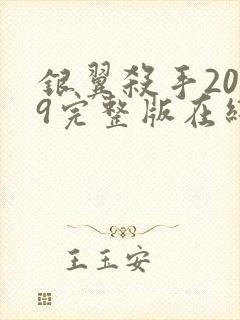 银翼殺手20
9完整版在纟
王玉安